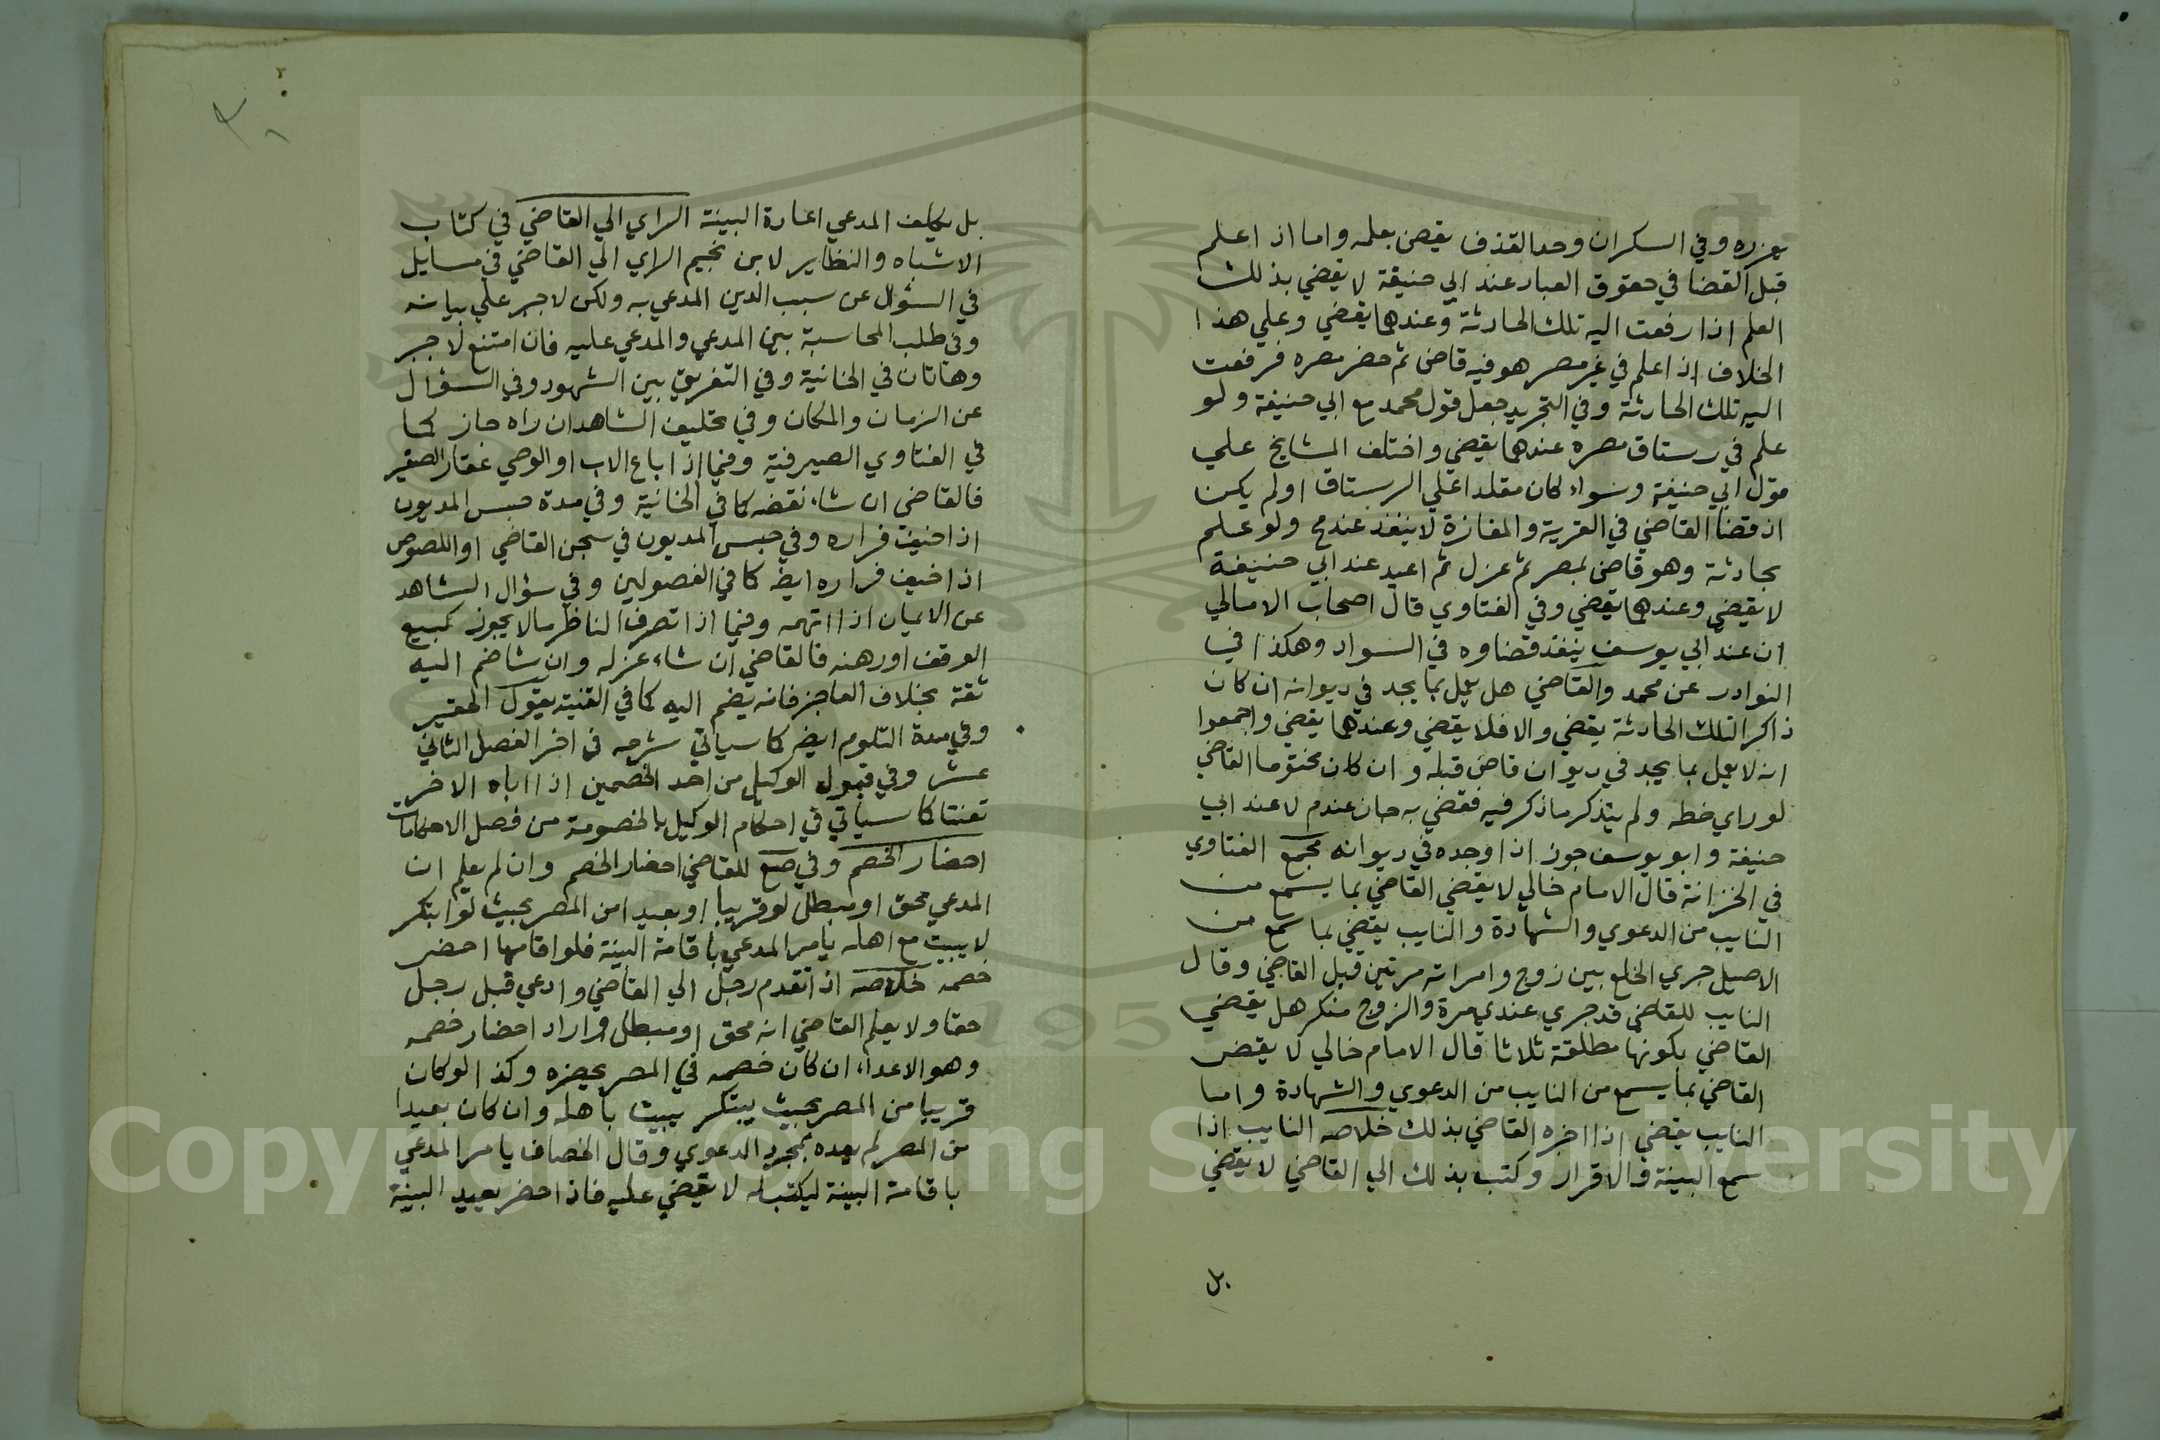 يعزره وفي السكران وحد القذف يقضي بعلمه واما اذ اعلم
قبل القضا في حقوق العباد عند ابي حنيفة لا يقضي بذلك
العلم اذا رفعت اليه تلك الحادثة وعندهما يقضي وعلي هذا
الخلاف اذ اعلم في غير مصر هو فيه قاضي ثم حضر مصره فرفعت
اليه تلك الحادثة وفي التجريد جعل قول محمد مع ابي حنيفة ولو
علم في رستاق مصره عندهما يقضي واختلف المشايخ علي
قول ابي حنيفة وسواء كان مقلدا علي الرستاق او لم يكن
اذ قضا القاضي في القرية والمفازة لا ينفذ عند مح ولو علم
بحادثة وهو قاضي بمصر ثم عزل ثم اعيد عند ابي حنيفة
لا يقضي وعندهما يقضي وفي الفتاوي قال اصحاب الامالي
ان عند ابي يوسف ينفذ قضاوه في السواد وهكذا في
النوادر عن محمد والقاضي هل يعمل بما يجد في ديوانه ان كان
ذاكرا لتلك الحادثة يقضي والا فلا يقضي وعندهما يقضي واجمعوا
انه لا يعمل بما يجد في ديوان قاض قبله وان كان مختوما القاضي
لو راي خطه ولم يتذكر ما ذكر فيه فقضي به جان عندم لا عند ابي
حنيفة وابو يوسف جوز اذا وجده في ديوانه مجمع الفتاوي
في الخزانة قال الامام خالي لا يقضي القاضي بما يسمع من
النايب من الدعوي والشهادة والنايب يقضي بما سمع من
الاصيل جري الخلع بين زوج وامراته مرتين قبل القاضي وقال
النايب للقاضي قد جري عندي مرة والزوج منكر هل يقضي
القاضي بكونها مطلقة ثلاثا قال الامام خالي لا يقض
القاضي بما يسمع من النايب من الدعوي والشهادة واما
النايب يقضي اذا اخبره القاضي بذلك خلاصه النايب اذا
سمع البينة والاقرار وكتب بذلك الي القاضي لا يقضي
بل
بل يكلف المدعي اعادة البينة الراي الي القاضي في كتاب
الاشباه والنظاير لابن نجيم الراي الي القاضي في مسايل
في السؤال عن سبب الدين المدعي به ولكن لا جبر علي بيانه
وفي طلب المحاسبة بين المدعي والمدعي عليه فان امتنع لا جبر
وهاتان في الخانية وفي التفريق بين الشهود وفي السؤال
عن الزمان والمكان وفي تحليف الشاهدان راه جاز كما
في الفتاوي الصيرفية وفيما اذا باع الاب او الوصي عقار الصغير
فالقاضي ان شاء نقضه كما في الخانية وفي مدة حبس المديون
اذا خيف فراره وفي حبس المديون في سجن القاضي او اللصوص
اذا خيف فراره ايضا كما في الفصولين وفي سؤال الشاهد
عن الايمان اذا اتهمه وفيما اذا تصرف الناظر مالا يجوز كبيع
الوقف او رهنه فالقاضي ان شاء عزله وان شا ضم اليه
ثقة بخلاف العاجز فانه يضم اليه كما في القنية يقول الحقير
وفي مدة التلوم ايض كما سياتي شرحه في اخر الفصل الثاني
عشر وفي قبول الوكيل من احد الخصمين اذا اباه الاخر
تعنتا كما سياتي في احكام الوكيل بالخصومة من فصل الاحكامات
احضار الخصم وفي صع للقاضي احضار الخصم وان لم يعلم ان
المدعي محق او مبطل لو قريبا او بعيدا من المصر بحيث لو ابتكر
لا يبيت مع اهله يامر المدعي باقامة البينة فلو اقامها احضر
خصمه خلاصه اذا تقدم رجل الي القاضي وادعي قبل رجل
حقا ولا يعلم القاضي انه محق او مبطل واراد احضار خصمه
وهو الاعداء ان كان خصمه في المصر يحضره وكذا لو كان
قريبا من المصر بحيث يبتكر يبيت باهله وان كان بعيدا
من المصر لم يعده بمجرد الدعوي وقال الخصاف يامر المدعي
باقامة البينة ليكتب له لا يقضي عليه فاذا احضر يعيد البينة
Copyright © King Saud University
1957